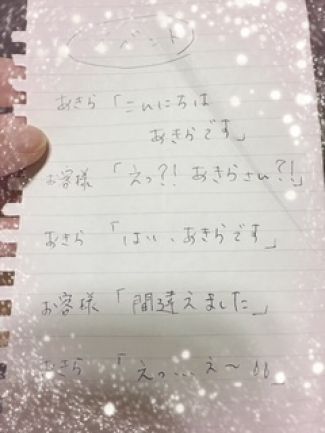 イベント
あきら「こんにちは
あきらです」
お客様「えっ?! あきらさん?!」
あきら「はい、あきらです」
お客様「間違えました」
あきら「えっ…え〜!!」